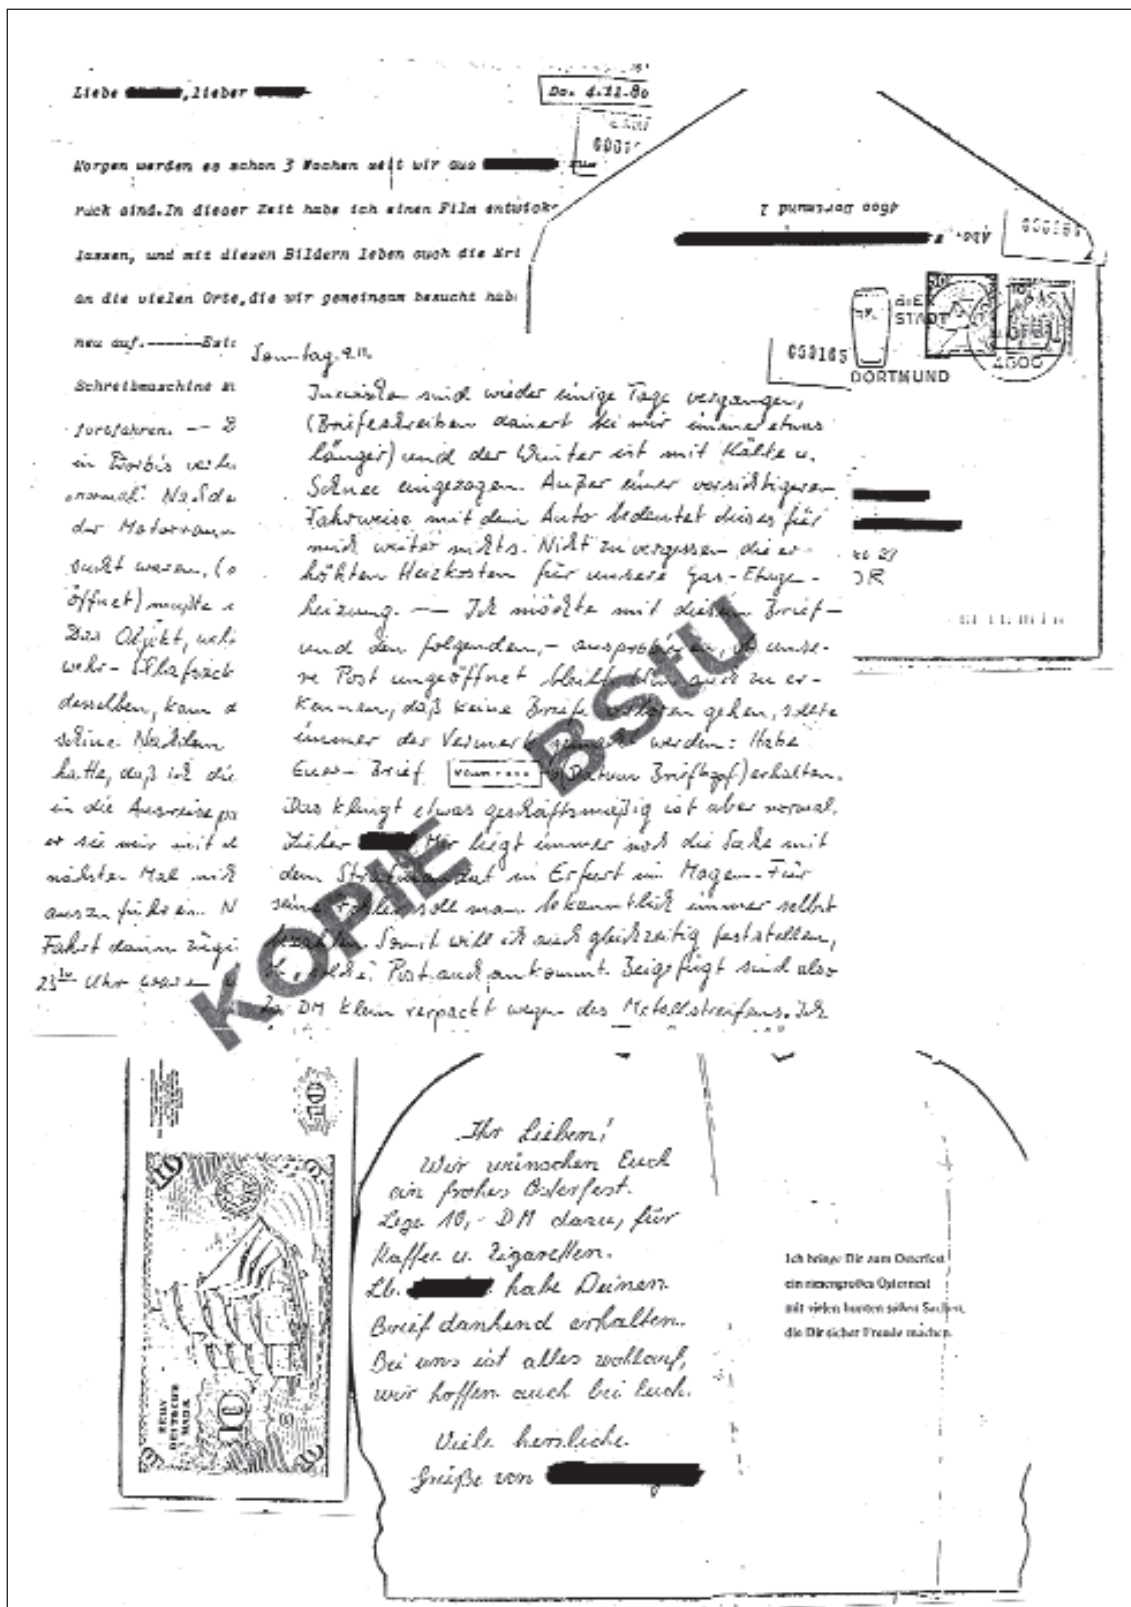 Liebe , lieber
Do. 4.11.80
Morgen werden es schon 3 Wochen seit wir aus zu
rück sind.In dieser Zeit habe ich einen Film entwick
lassen, und mit diesen Bildern leben auch die Eri
an die vielen Orte,die wir gemeinsam besucht hab
neu auf.------
Schreibmaschine
fortfahren. --
in Worbis
normal. Nachde
der Motorraum
sucht waren, (
öffnet) mußte
Das Objekt,
desselben, kam
Nachdem
hatte, daß ich die
in die Ausreise
er sie mir mit
nächsten Mal nich
auszuführen. N
Fahrt dann zügi
23 Uhr waren
Sonntag 9.11.
Inzwischen sind wieder einige Tage vergangen,
(Briefeschreiben dauert bei mir immer etwas
länger) und der Winter ist mit Kälte u.
Schnee eingezogen. Außer einer vorsichtigeren
Fahrweise mit dem Auto bedeutet dieses für
mich weiter nichts. Nicht zu vergessen die er-
höhten Heizkosten für unsere Gas-Etagen-
heizung. — Ich möchte mit diesem Brief -
und den folgenden, - ausprobieren, ob unse-
re Post ungeöffnet bleibt. Um auch zu er-
kennen, daß keine Briefe verloren gehen, sollte
immer der Vermerk gemacht werden: Habe
Euer Brief vom (Datum Briefkopf) erhalten.
Das klingt etwas geschäftsmäßig ist aber normal.
Lieber Mir liegt immer noch die Sache mit
dem Strafmandat in Erfurt im Magen. Für
seine Fehler soll man bekanntlich immer selbst
bezahlen. Somit will ich auch gleichzeitig feststellen,
ob solche Post auch ankommt. Beigefügt sind also
DM klein verpackt wegen des Metallstreifens. Ich
4600 Dortmund 1
Abs.
050165
BIER
STADT
50
4600
DORTMUND
050165
KOPIE BStU
10
10
ZEHN
DEUTSCHE
MARK
10
10
Ihr Lieben!
Wir wünschen Euch
ein frohes Osterfest.
Lege 10,- DM dazu, für
Kaffee u. Zigaretten.
Lb. habe Deinen
Brief dankend erhalten.
Bei uns ist alles wohlauf,
wir hoffen auch bei Euch.
Viele herzliche
Grüße von
Ich bringe Dir zum Osterfest
ein riesengroßes Osternest
mit vielen bunten süßen Sachen,
die Dir sicher Freude machen.